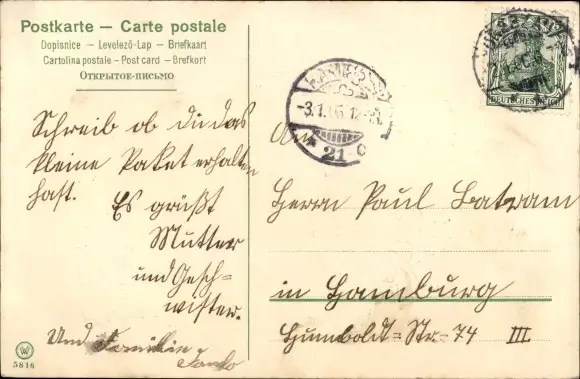 Postkarte — Carte postale
Dopisnice — Levelező-Lap — Briefkaart
Cartolina postale - Post card - Brefkort
ОТКРЫТОЕ-ПИСЬМО
Schreib ob du das
kleine Paket erhalten
hast.
Es grüßt
Mutter
und Gesch-
wister.
Und Familie
5816
DEUTSCHES REICH
-3.1.06.12-
* 21 c
An
Herrn Paul Batram
in Hamburg
Humboldt=Str=74 III